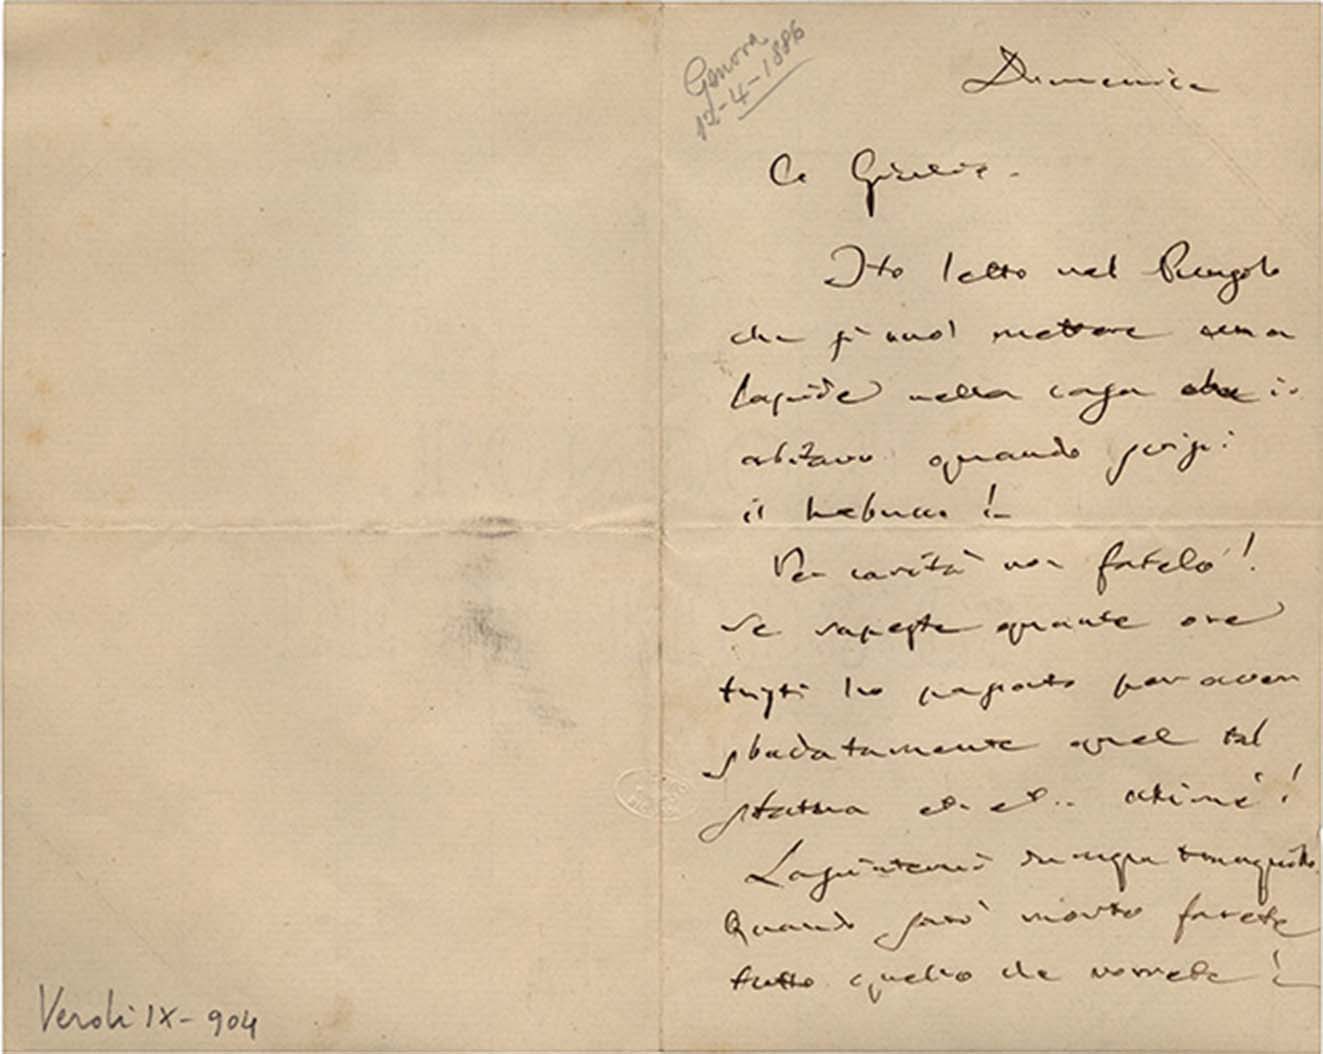 Genova
12-4-1886
Domenica
Co Giulio.
Ho letto nel Pungolo
che si vuol mettere una
lapide nella casa che io
abitavo quando scrissi
il Nabucco!
Per carità non fatelo!
Se sapeste quante ore
tristi ho passato per aver
sbadatamente quel tal
statua ed ahimè!
Lasciatemi dunque tranquillo.
Quando sarò morto farete
tutto quello che vorrete!
Verdi IX-904